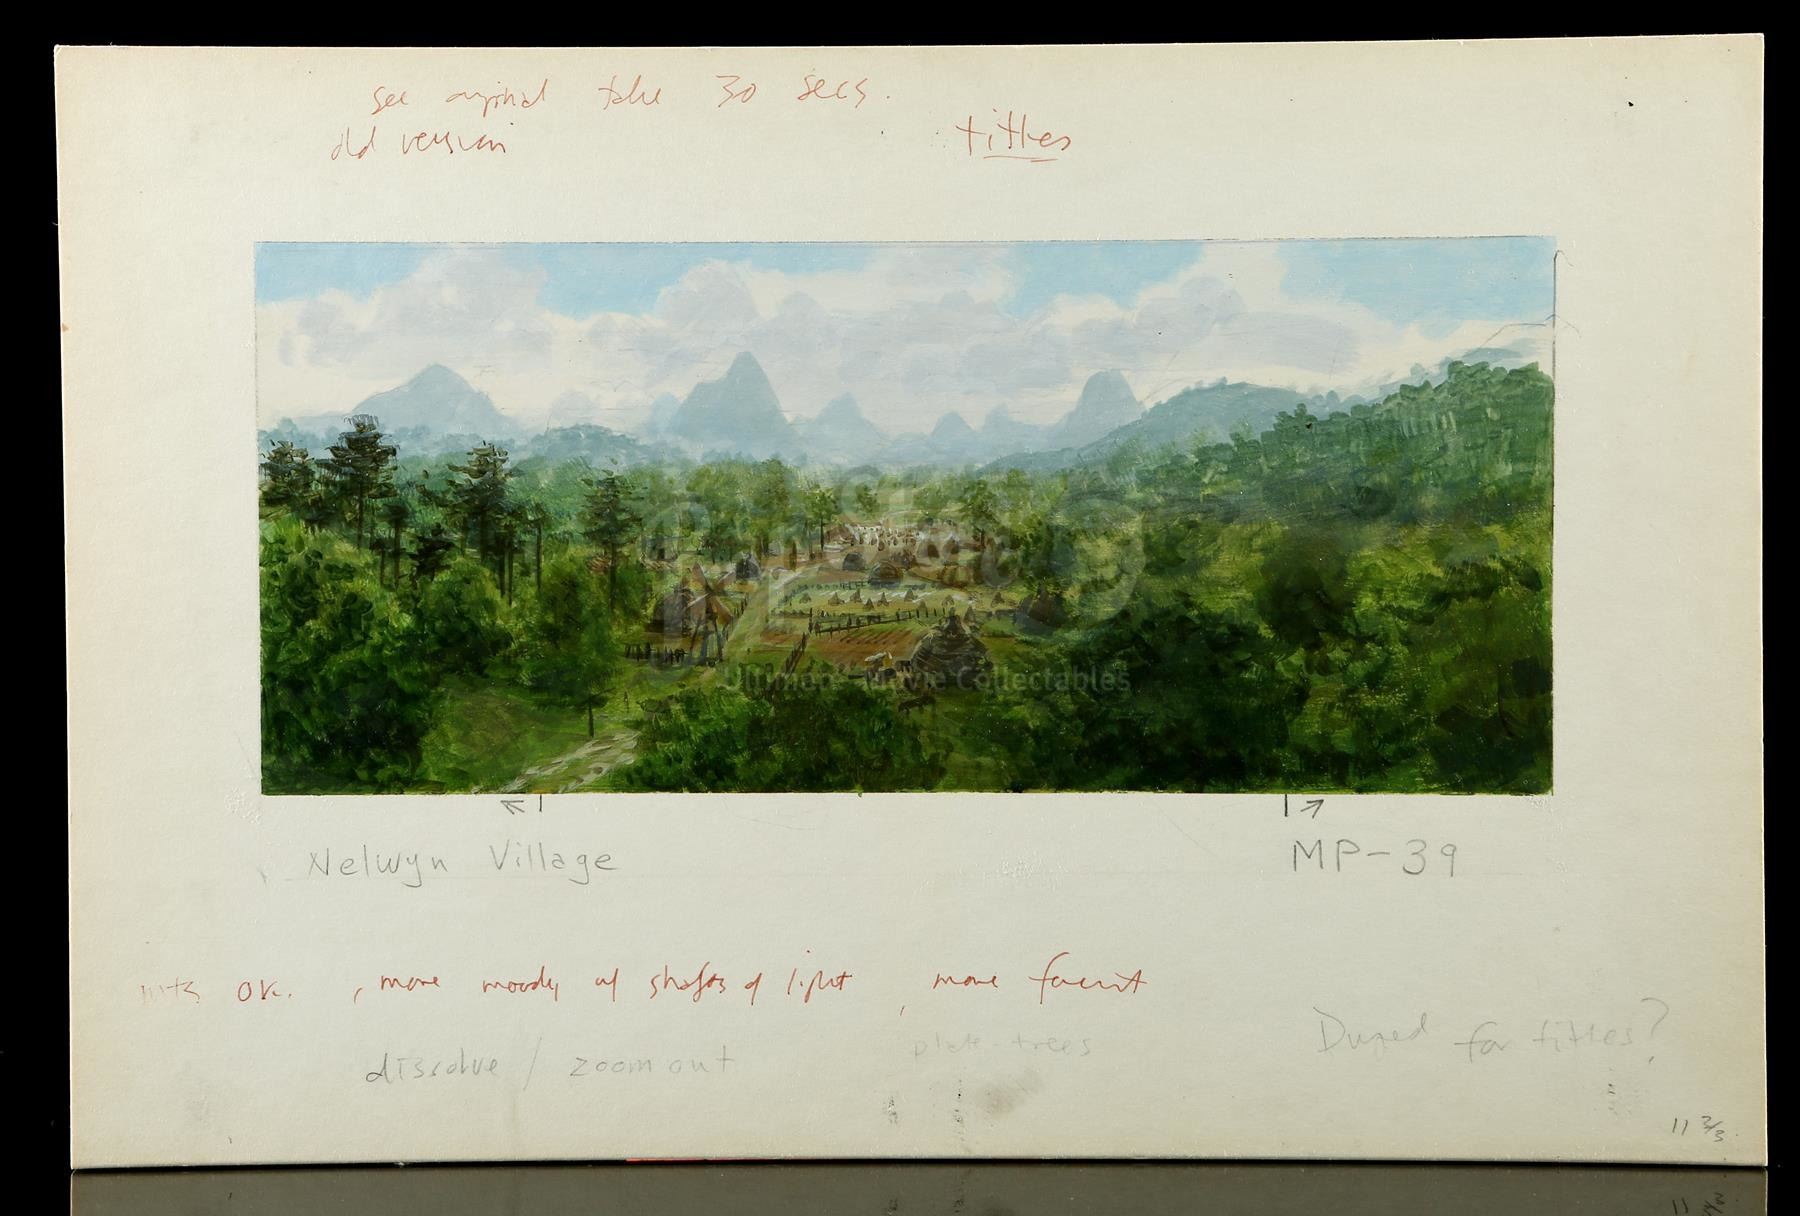 see original take 30 secs.
old version
titles
prop store
Ultimate Movie Collectables
Nelwyn Village
MP-39
OK. , more moody w/ shafts of light , more faint
dissolve / zoom out
plate-trees
Duped for titles?
11 2/3